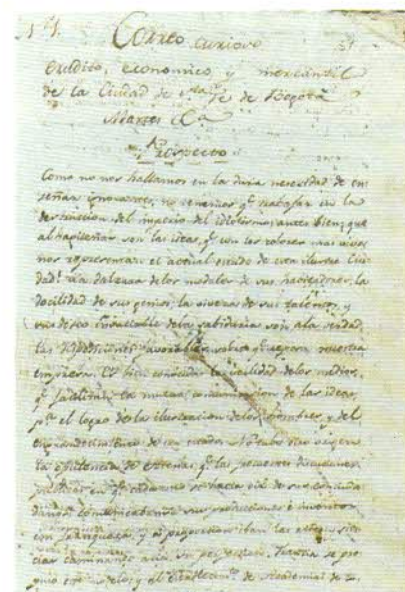 Nº 1.
Correo curioso
erudito, economico y mercantil
de la Ciudad de Sta Fé de Bogotá
Martes
Prospecto
Como no nos hallamos en la dura necesidad de en
señar ignorantes, no tenemos qe trabajar en la
destruccion del imperio del idiotismo; antes bien, que
al son las ideas, qe con los colores mas vivos
nos representan el actual estado de esta ilustre Ciu
dad! La de los modales de sus havitadores, la
docilidad de sus genios, la viveza de sus talentos, y
su deseo insaciable de la sabiduria son a la verdad,
las disposiciones favorables sobre qe nuestra
empresa. Es bien conocida la utilidad de los medios,
qe facilitan la mutua comunicacion de las ideas,
pa el logro de la ilustracion de los hombres y del
engrandecimiento de los estados. No tubo otro origen
la opulencia de Atenas, qe las frecuentes discusiones
publicas en qe cada uno se hacia oir de sus conciuda
danos, comunicandose sus producciones e inventos
con franqueza, y a proporcion iban las artes y cien
cias caminando a su perfeccion. Francia se pro
puso este y el establecimto de Academias de